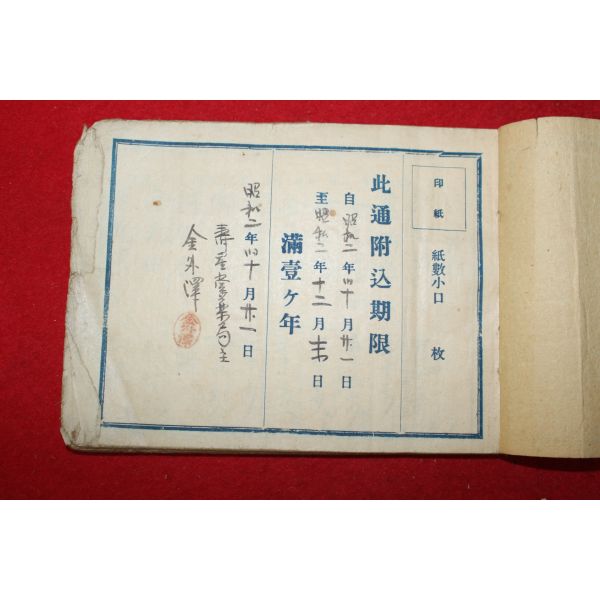 印紙
紙數小口 枚
此通附込期限
自昭和二年四十月廿一日
至昭和二年十二月末日
滿壹ケ年
昭和二年四十月廿一日
壽 藥局主
金外澤